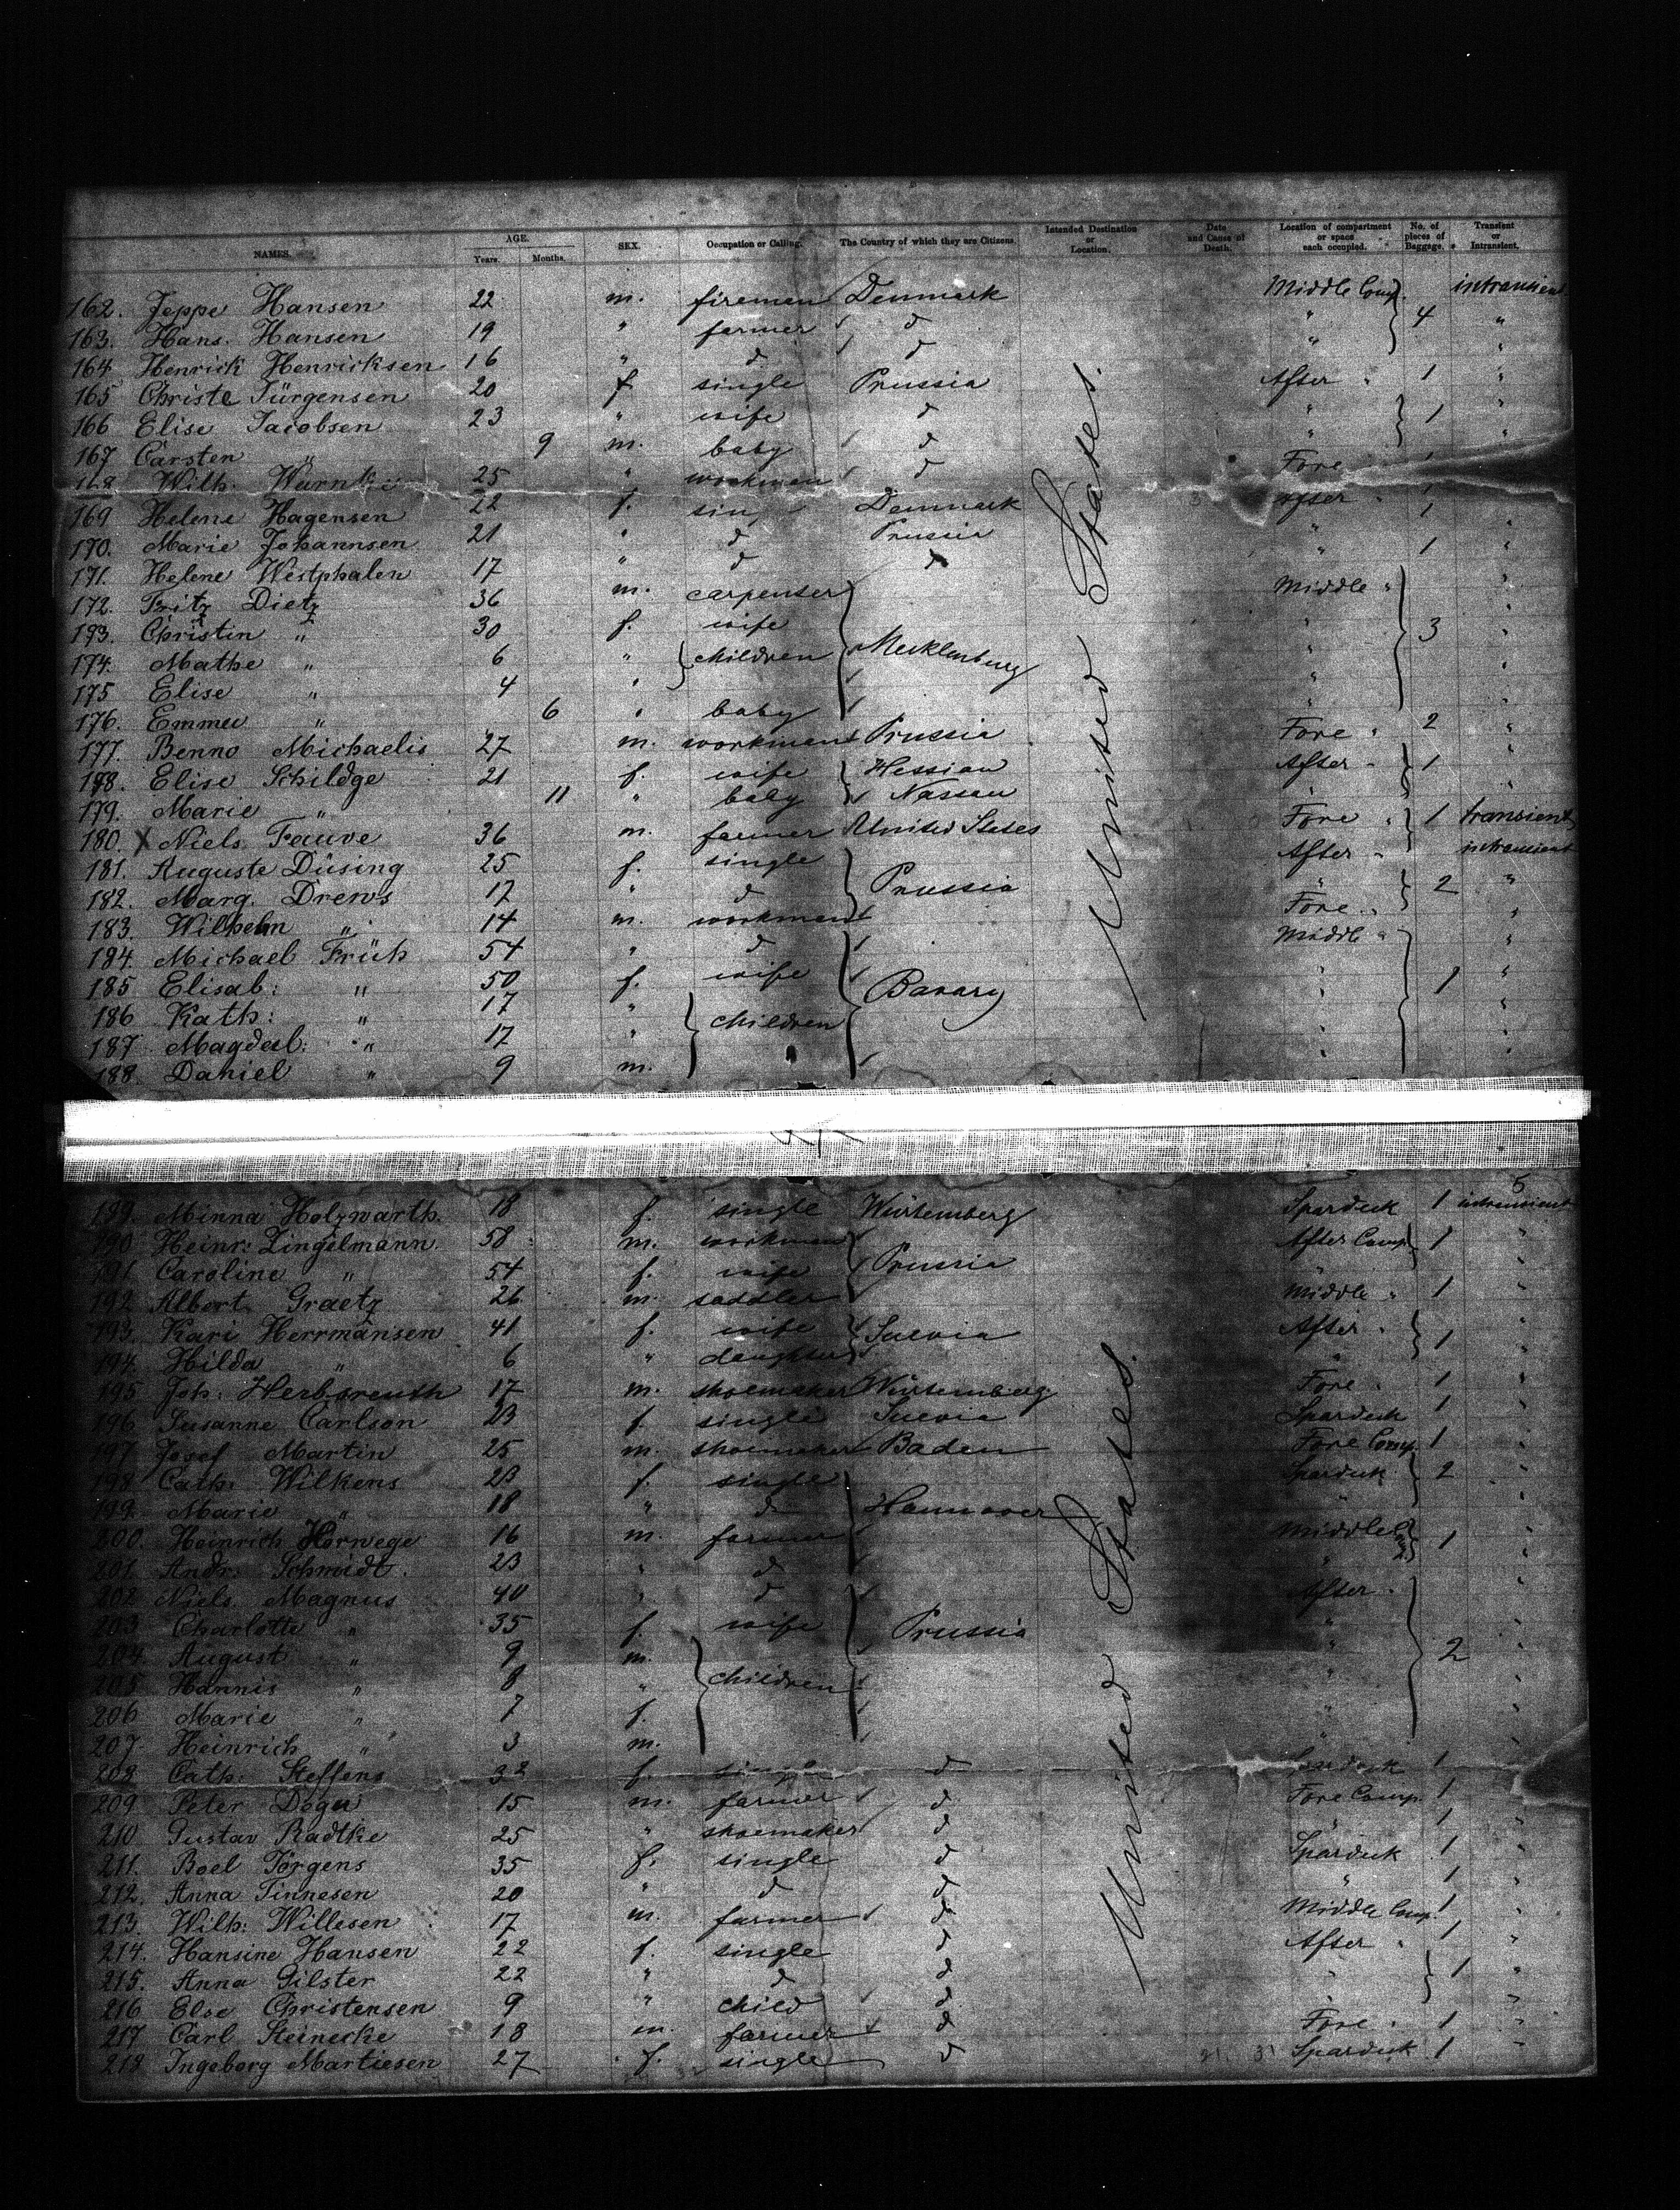 NAMES. AGE. Years. Months. SEX. Occupation or Calling. The Country of which they are Citizens. Intended Destination or Location. Date and Cause of Death. Location of compartment or space each occupied. No. of pieces of Baggage. Transient or Intransient.
162. Jeppe Hansen 22 m. firemen Denmark Middle Comp. intransient
163. Hans. Hansen 19 " farmer d " 4 "
164 Henrick Henricksen 16 " d d " "
165 Christe Jürgensen 20 f single Prussia After " 1 "
166 Elise Jacobsen 23 " wife d " 1 "
167 Carsten " 9 m. baby d " "
168 Wilh. 25 " workmen d Fore
169 Helene Hagensen 22 f. sin Denmark After " 1
170. Marie Johannsen 21 " d Prussia "
171. Helene Westphalen 17 " d d " 1 "
172. Fritz Dietz 36 m. carpenter Middle " "
193. Christin " 30 f. wife " 3 "
174. Mathe " 6 " children Mecklenburg " "
175 Elise " 4 " " "
176. Emmee " 6 " baby " "
177. Benno Michaelis 27 m. workment Prussia Fore " 2 "
178. Elise Schildge 21 f. wife Hessian After " 1 "
179. Marie " 11 " baby Nassau "
180. X Niels Fauve 36 m. farmer United States Fore " 1 transient
181. Auguste Düsing 25 f. single After " intransient
182. Marg. Drews 17 " d Prussia " 2 "
183. Wilhelm " 14 m. workment Fore " "
184. Michael Früh 54 " d Middl " "
185 Elisab: " 50 f. wife " 1 "
186 Kath: " 17 " Bavary " "
187 Magdal: " 17 " children " "
188 Daniel " 9 m. " "
United States.
5
199. Minna Holzwarth. 18 f. single Würtemberg Spardeck 1 intransient
190 Heinr: Lingelmann. 58 m. workmen After Comp 1 "
191 Caroline " 54 f. wife Prussia " "
192 Albert Graetz 26 m. saddler Middle " 1 "
193. Kari Herrmansen 41 f. wife Suevia After " 1 "
194. Hilda " 6 " daughter " "
195 Joh: Herbsreuth 17 m. shoemaker Würtemberg Fore " 1 "
196 Susanne Carlson 23 f. single Suevia Spardeck 1 "
197 Josef Martin 25 m. shoemaker Baden Fore Comp. 1 "
198 Cath: Wilkens 23 f. single Spardeck 2 "
199. Marie " 18 " d Hannover " "
200. Heinrich Horwege 16 m. farmer Middle 1 "
201. Andr. Schmidt. 23 " d " "
202 Niels Magnus 40 " d After " "
203 Charlotte " 35 f. wife Prussia " "
204. August " 9 m. " 2 "
205 Hannis " 8 " children " "
206 Marie " 7 f. " "
207. Heinrich " 3 m. " "
208 Cath: Steffens 32 f. single d Spardeck 1 "
209 Peter 15 m. farmer d Fore Comp. 1 "
210 Gustav Radtke 25 " shoemaker d " 1 "
211. Boel Jörgens 35 f. single d Spardeck 1 "
212. Anna Tinnesen 20 " d d " 1 "
213. Wilh: Willesen 17 m. farmer d Middle Comp. 1 "
214. Hansine Hansen 22 f. single d After " 1 "
215. Anna Gilster 22 " d d " 1 "
216 Else Christensen 9 " child d " "
217 Carl Steinecke 18 m. farmer d Fore " 1 "
218 Ingeborg Martiesen 27 f. single d Spardeck 1 "
United States.